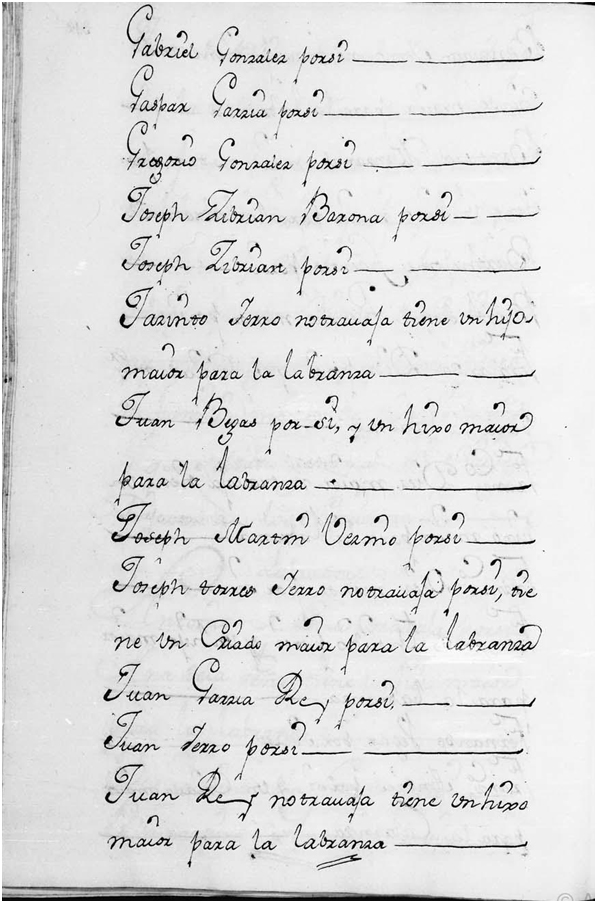 Gabriel Gonzalez porsi
Gaspar Garzia porsi
Gregorio Gonzalez porsi
Joseph Zibrian Barona porsi
Joseph Zibrian porsi
Jazinto Serro notravaja tiene un hijo
maior para la labranza
Juan Begas por si, y un hixo maior
para la labranza
Joseph Martin Vermo porsi
Joseph torres Serro notravaja porsi, tie
ne un Criado maior para la labranza
Juan Garzia Rey porsi
Juan Serro porsi
Juan Rey notravaja tiene un hixo
maior para la labranza